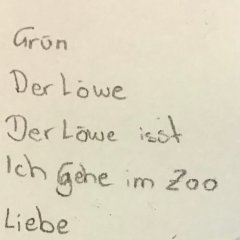 Grün
Der Löwe
Der Löwe isst
Ich Gehe im Zoo
Liebe